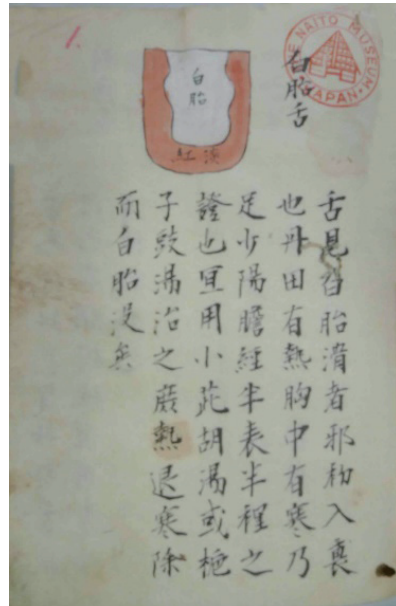 1.
THE NAITO MUSEUM
JAPAN
白胎舌
白胎
淡紅
舌見白胎滑者邪初入裏
也丹田有熱胸中有寒乃
足少陽膽經半表半裡之
證也宜用小茈胡湯或梔
子豉湯治之庶熱退寒除
而白胎没矣